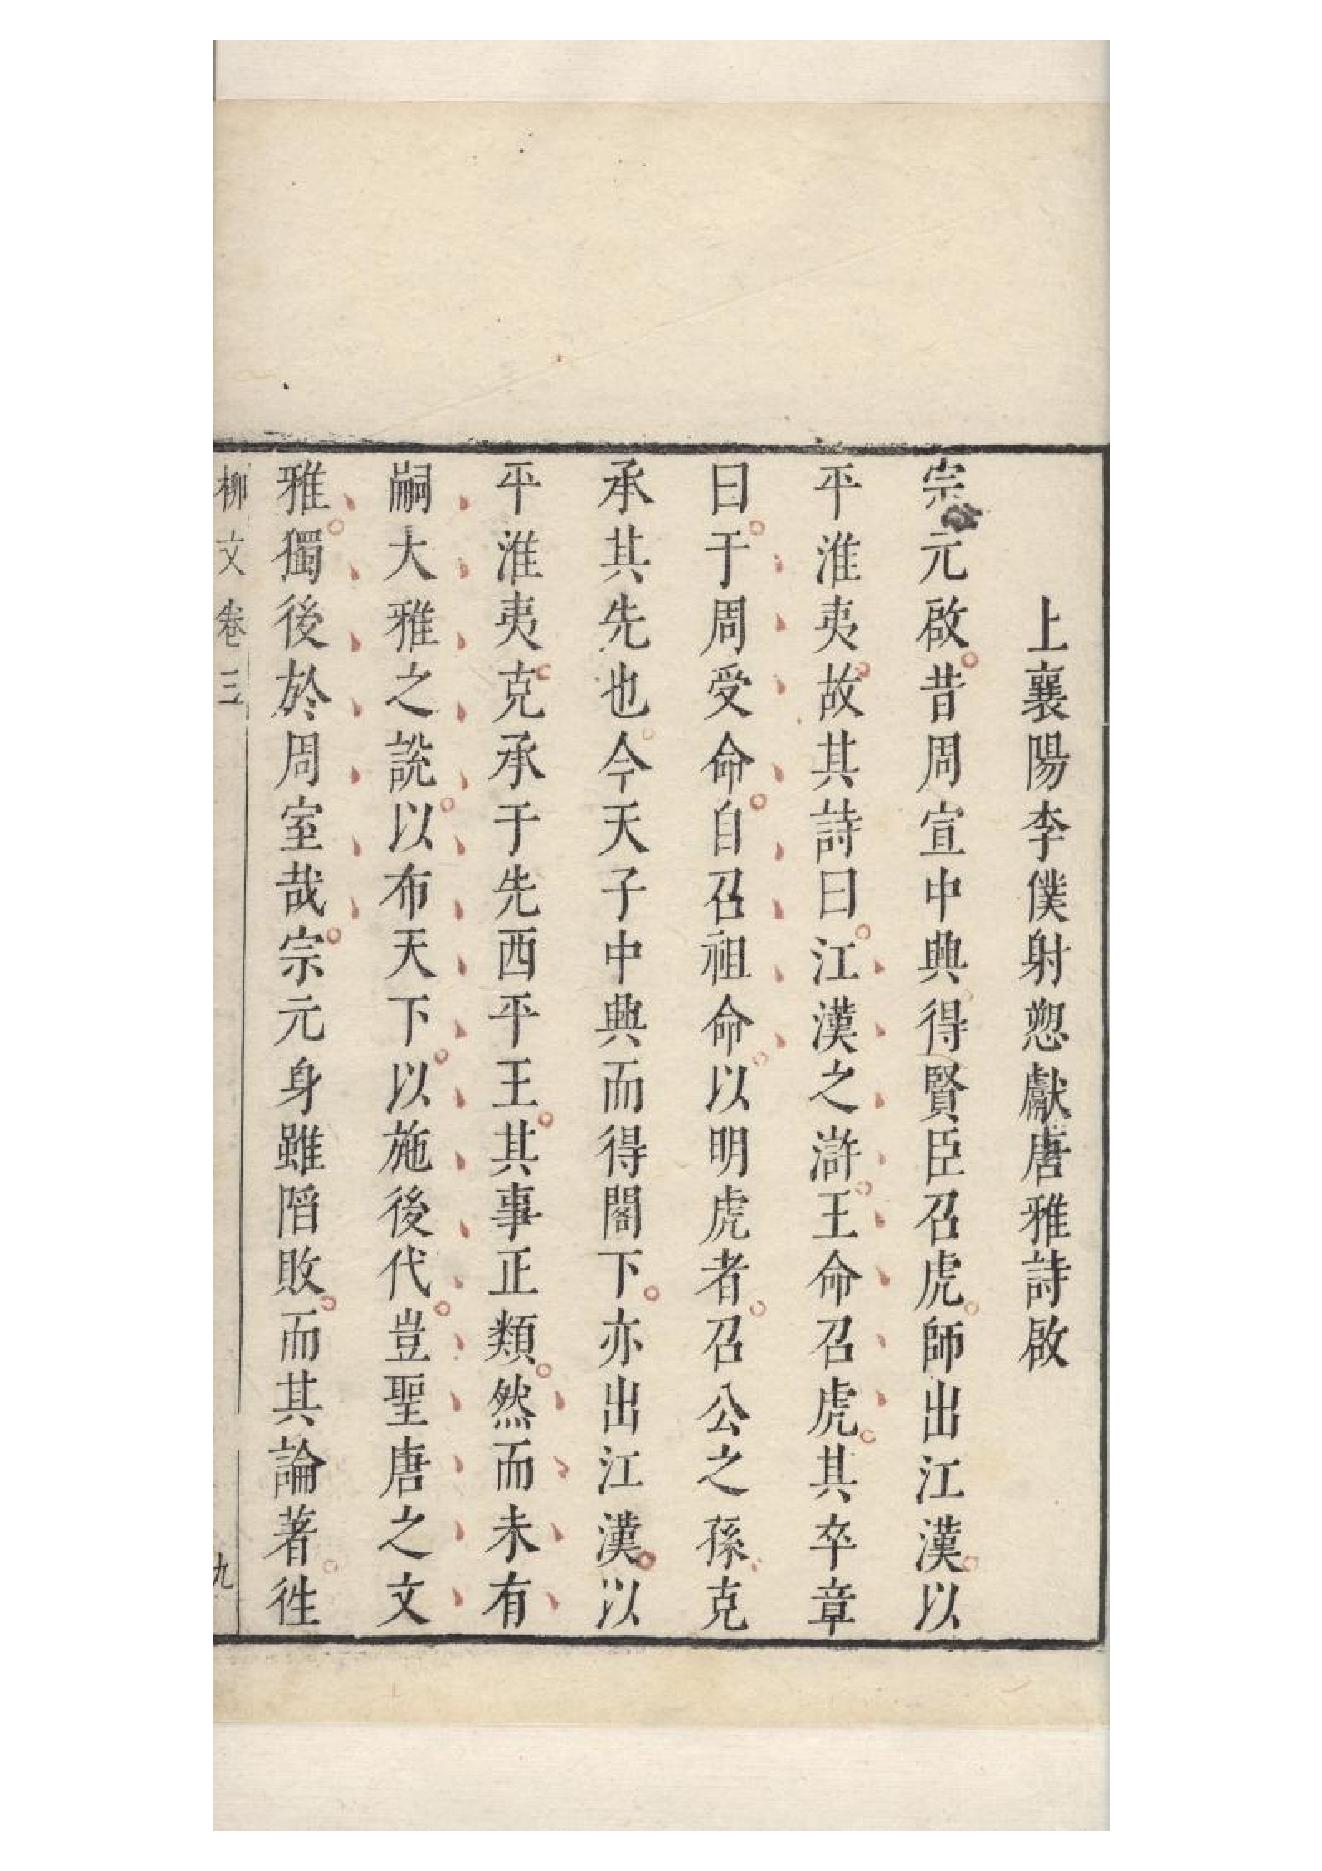 上襄陽李僕射愬獻唐雅詩啟
宗元啟昔周宣中興得賢臣召虎師出江漢以
平淮夷故其詩曰江漢之滸王命召虎其卒章
曰于周受命自召祖命以明虎者召公之孫克
承其先也今天子中興而得閣下亦出江漢以
平淮夷克承于先西平王其事正類然而未有
嗣大雅之說以布天下以施後代豈聖唐之文
雅獨後於周室哉宗元身雖陷敗而其論著徃
柳文卷三
九